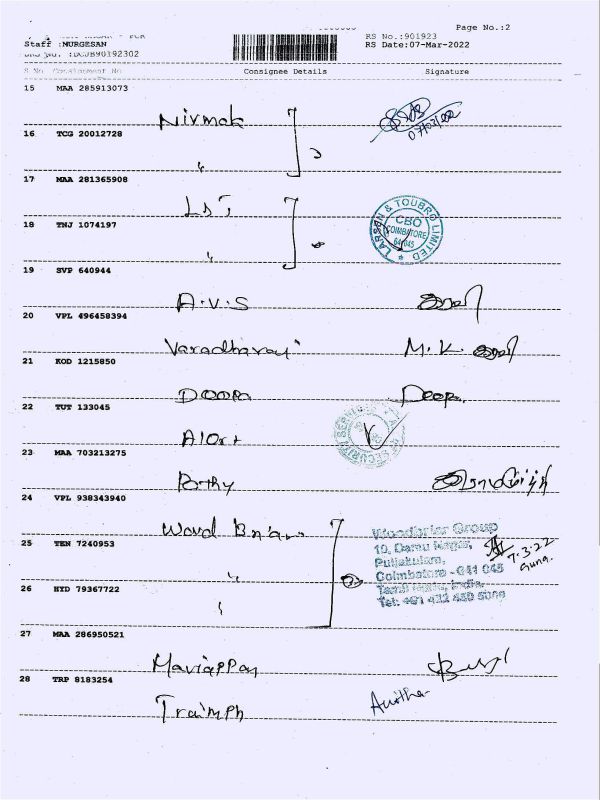 Page No.:2
RS No.:901923
Staff :NURGESAN
RS Date:07-Mar-2022
S.No Consignment No Consignee Details Signature
15 MAA 285913073
Nirmala
07/03/22
16 TCG 20012728
〃
17 MAA 281365908
L&T
18 TNJ 1074197
LARSEN & TOUBRO LIMITED
CBO
COIMBATORE
641 045
〃
19 SVP 640944
A.V.S
20 VPL 496458394
Varadharaj M.K.
21 KOD 1215850
Deepa Deepa.
22 TUT 133045
Alert
SECURITY SERVICES
23 MAA 703213275
24 VPL 938343940
Woodbriar Group
10, Damu Nagar,
7.3.22
Guna.
25 TEN 7240953
Puliakulam,
Coimbatore - 641 045
〃
Tamil Nadu, India.
26 HYD 79367722
〃
27 MAA 286950521
Mariappan
28 TRP 8183254
Anitha
Traimph